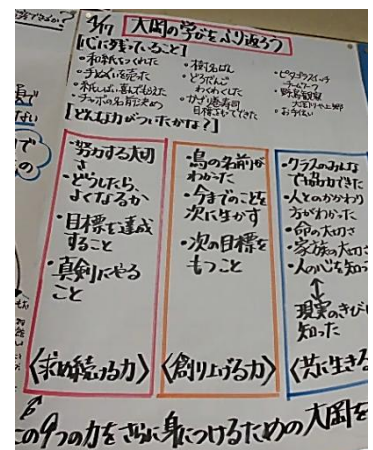 4/17 大岡の学びをふり返ろう
[心に残っていること]
・和紙をつくれた
・手ぬぐいを売った
・紙しばい喜んでもらえた
・チャボの名前決め
・樹名ばん
・どろだんご
わくわくした
・かざり巻寿司
目標をもてできた
・ピタゴラスイッチ
チームワーク
・野鳥観察
・お手伝い
[どんな力がついたかな?]
・努力する大切
さ
・どうしたら、
よくなるか
・目標を達成
すること
・真剣にやる
こと
〈求め続ける力〉
・鳥の名前が
わかった
・今までのことを
次に生かす
・次の目標を
もつこと
〈創り上げる力〉
・クラスのみんな
で協力できた
・人とのかかわり
方がわかった
・命の大切さ
・家族の大切さ
・人の心を知っ
現実のきび
知った
〈共に生きる
この9つの力をさらに身につけるための大岡を